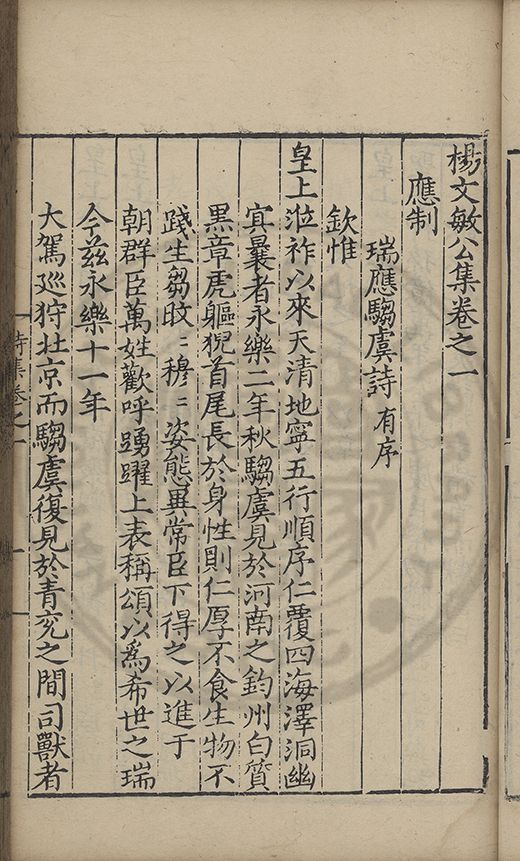 楊文敏公集卷之一
應制
瑞應騶虞詩有序
欽惟
皇上涖祚以來天清地寧五行順序仁覆四海澤洞幽
冥曩者永樂二年秋騶虞見於河南之鈞州白質
黑章虎軀猊首尾長於身性則仁厚不食生物不
踐生芻旼〻穆〻姿態異常臣下得之以進于
朝群臣萬姓歡呼踴躍上表稱頌以為希世之瑞
今兹永樂十一年
大駕廵狩北京而騶虞復見於青兖之間司獸者
詩集卷之一